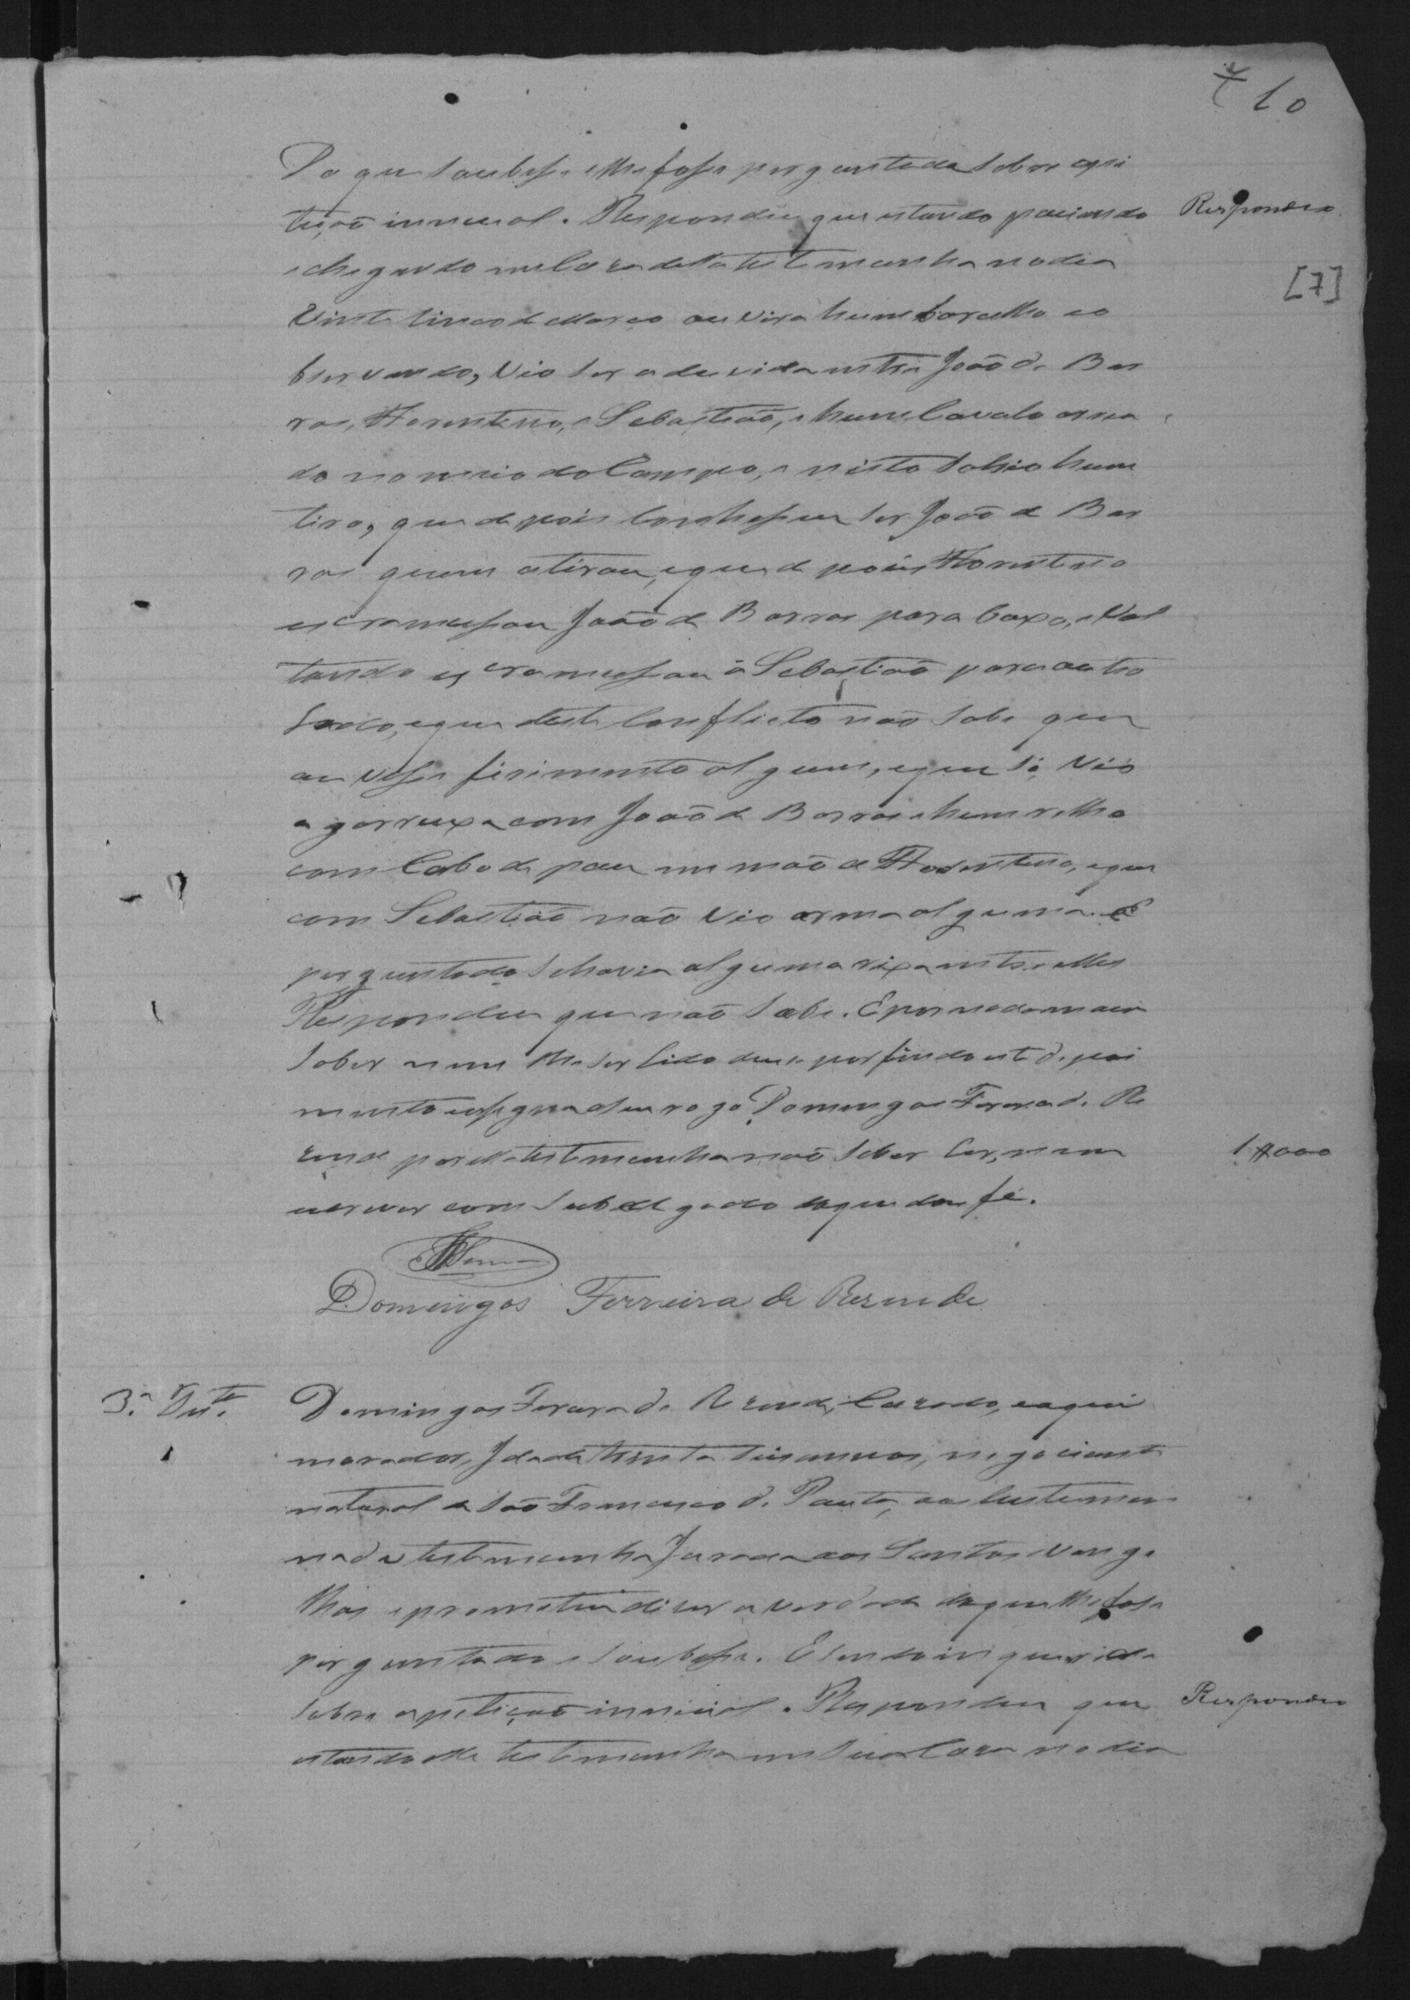 10
Do que soubesse e lhe fosse perguntada sobre a peti
tição inicial. Respondeu que estando paciando Respondeo
e chegando na Caza della testemunha no dia
[7]
Vinte cinco de Março ouvira hum barulho e o
bservando, vio ser a duvida entre João de Bar
ros, Florentino, e Sebastião, e hum Cavalo arrea
do no meio do Campo, e nisto sahio hum
tiro, que depois Conhesseu ser João de Bar
ros quem atirou, e que depois Florentino
escramussou João de Barros para baxo, e Vol
tando escramussou a Sebastião para outro
lado, e que deste Conflicto não sabe que
ouvesse firimento algum, e que só vio
a garruxa com João de Barros e hum relho
com Cabo de pau na mão de Florentino, e que
com Sebastião não vio arma alguma. E
perguntado se havia alguma rixa entre elles
Respondeu que não sabe. E por nada mais
saber nem lhe ser lido deu-se por findo este depoi
mento e assigna a seu rogo Domingos Ferera de Re
zende por ella testemunha não saber ler, nem 1$000
escrever com Subdelgado do que dou fé.
Domingos Ferreira de Rezende
3.ª Test.
Domingos Ferera de Rezende, Cazado, e aqui
morador, Idade trinta e seis annos, negociante
natural de São Francisco de Paula, aos Custumes
nada testemunha Jurada aos Santos Evange
lhos e prometeu dizer a verdade do que lhe fosse
perguntado e soubesse. E sendo inquerido
sobre a petição inicial. Respondeu que Respondeo
estando elle testemunha em sua Caza no dia